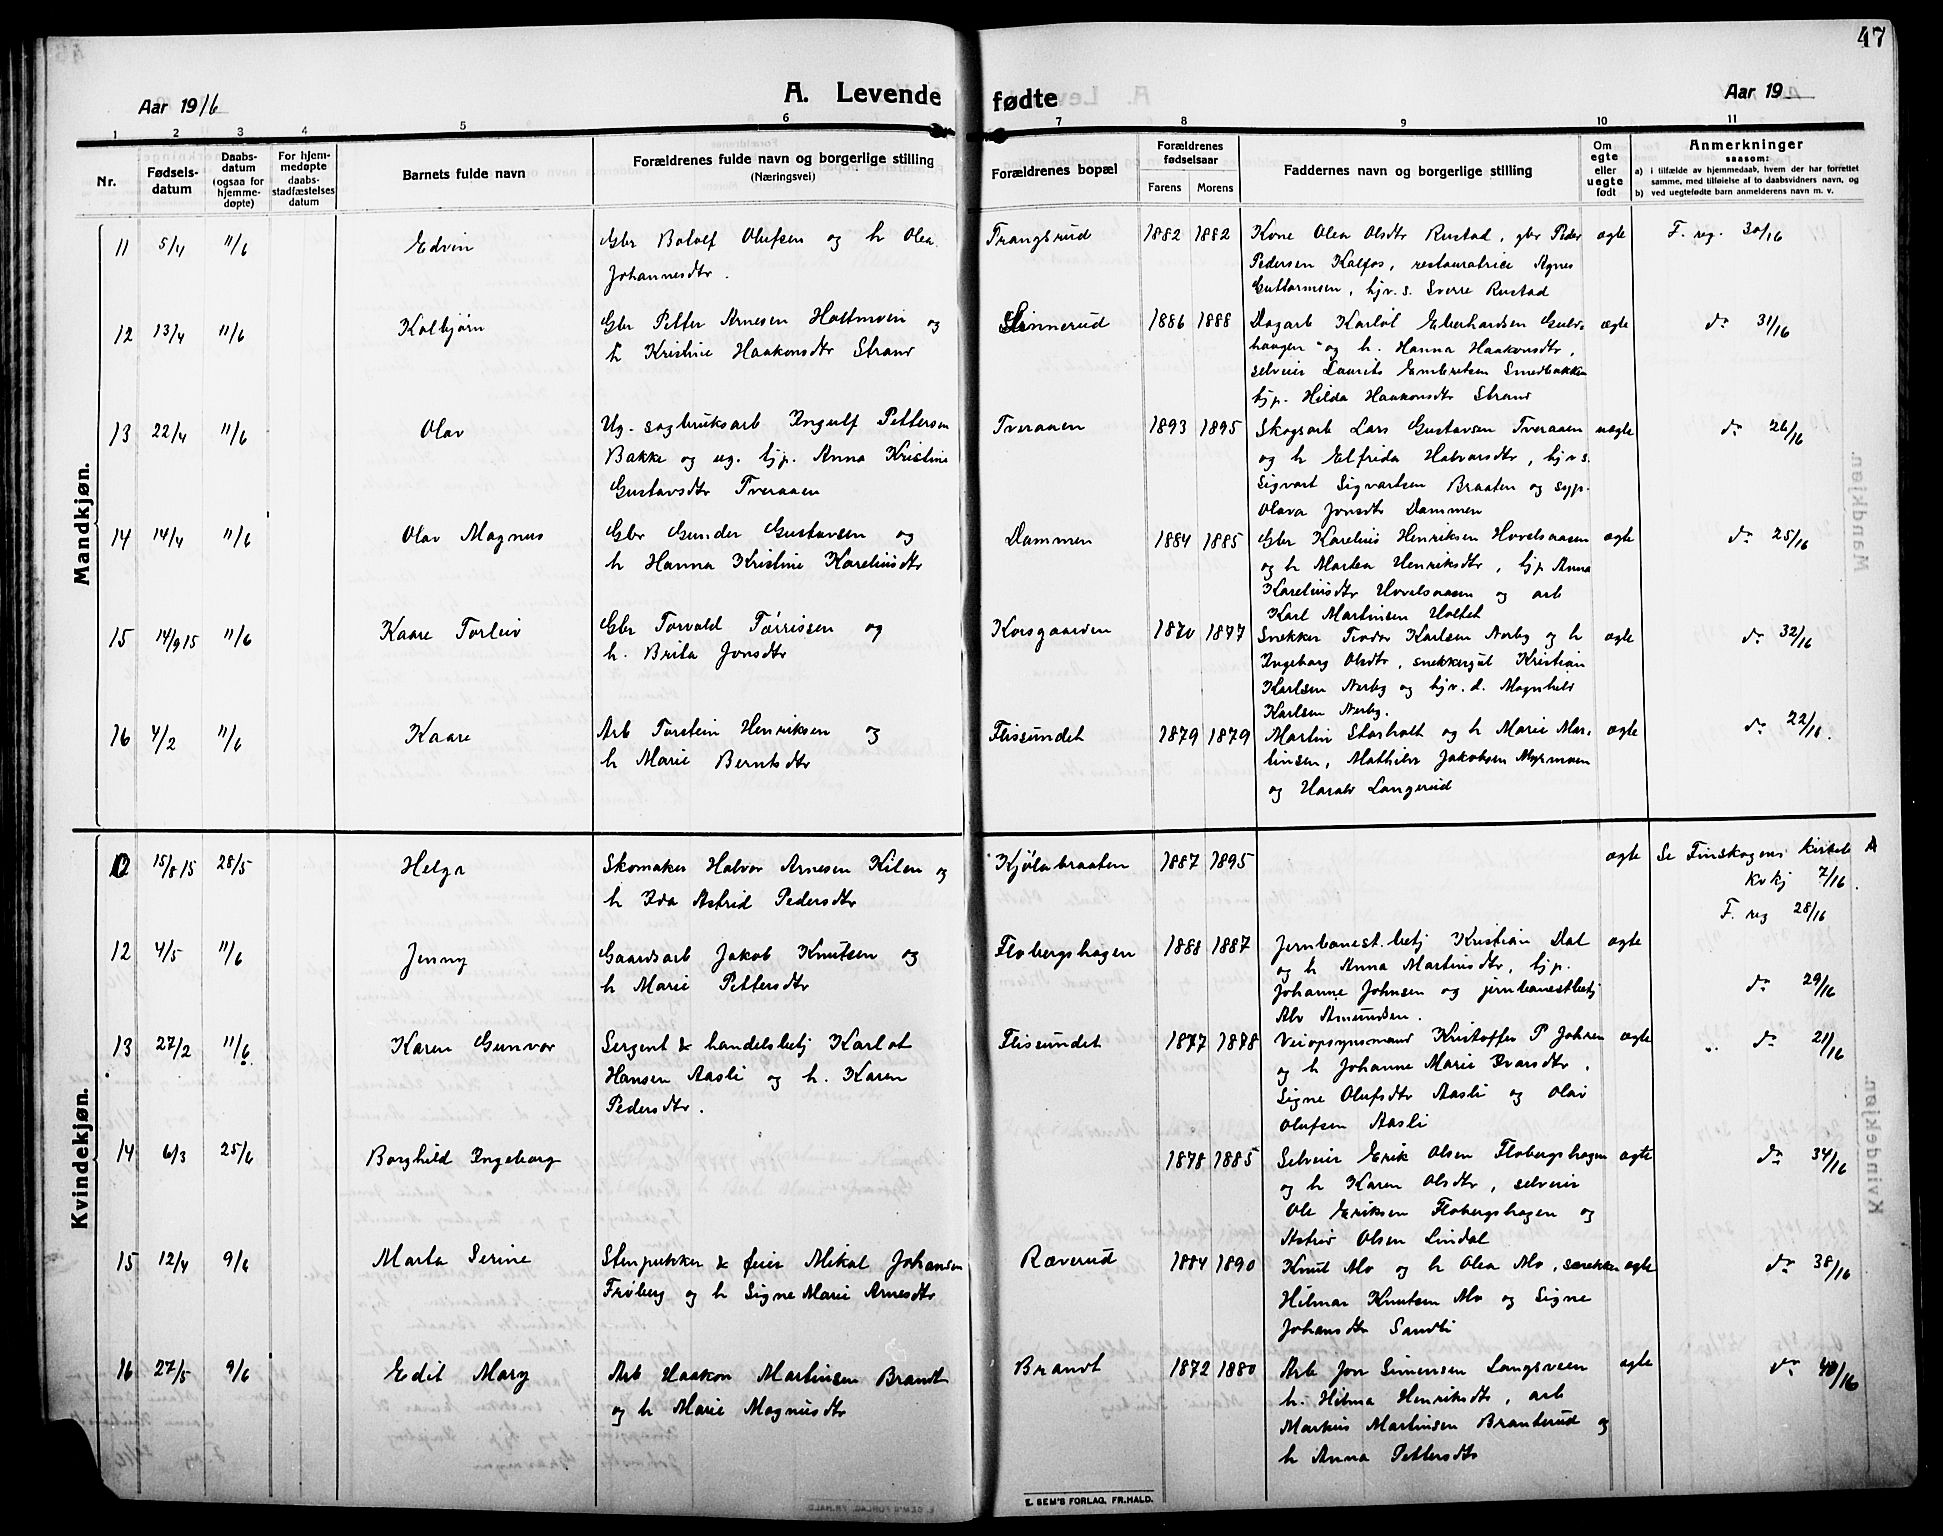 47
Aar 1916
A. Levende fødte
Aar 19
1 2 3 4 5 6 7 8 9 10 11
Nr.
Fødsels-
datum
Daabs-
datum
(ogsaa for
hjemme-
døpte)
For hjem-
medøpte
daabs-
stadfæstelses
datum
Barnets fulde navn
Forældrenes fulde navn og borgerlige stilling
(Næringsvei)
Forældrenes bopæl
Forældrenes
fødselsaar
Farens Morens
Faddernes navn og borgerlige stilling
Om
egte
eller
uegte
født
Anmerkninger
saasom:
a) i tilfælde av hjemmedaab, hvem der har forrettet
samme, med tilføielse af to daabsvidners navn, og
b) ved uegtefødte barn anmelderens navn m. v.
Mandkjøn.
11 5/4 11/6 Edvin Gbr Bololf Olufsen og h Olea Trangsrud 1882 1882 Kone Olea Olsdtr Rustad, gbr Peder egte F. reg. 30/16
Johannesdtr. Pedersen Kalfos, restauratrice Agnes
Guttormsen, hjv. s. Sverre Rustad
12 13/4 11/6 Kolbjørn Gbr Petter Arnesen Holtmoen og Linnerud 1886 1888 Dagarb Karlot Eberhardsen Gulv- egte do 31/16
h Kristine Haakonsdtr Strand haugen og h. Hanna Haakonsdtr,
selveier Laurits Embretsen Smedbakken
tjp. Hilda Haakonsdtr Strand
13 22/4 11/6 Olav Ug. sagbruksarb Ingulf Pettersen Tveraaen 1893 1895 Skogsarb Lars Gustavsen Tveraaen uegte do 26/16
Bakke og ug. tjp. Anna Kristine og h Elfrida Halvorsdtr, hjv s.
Gustavsdtr Tveraaen Sigvart Sigvartsen Braaten og syp.
Olava Jonsdtr Dammen
14 14/4 11/6 Olav Magnus Gbr Gunder Gustavsen og Dammen 1884 1885 Gbr Karelius Henriksen Hovelsaasen egte do 25/16
h Hanna Kristine Kareliusdtr og h Martea Henriksdtr, tjp Anna
Kareliusdtr Hovelsaasen og arb
Karl Martinsen Holtet
15 14/9 15 11/6 Kaare Torleiv Gbr Torvald Tørrissen og Korsgaarden 1870 1877 Snekker Teodor Karlsen Nerby og h egte do 32/16
h. Brita Jonsdtr Ingeborg Olsdtr, snekkergut Kristian
Karlsen Nerby og hjv. d. Magnhild
Karlsen Nerby.
16 4/2 11/6 Kaare Arb Torstein Henriksen og Flissundet 1879 1879 Martin Storholt og h Marie Mar- egte do 22/16.
h Marie Berntsdtr tinsen, Mathilde Jakobsen Myrmoen
og Harald Langerud
Kvindekjøn.
15/8 15 28/5 Helga Skomaker Halvor Arnesen Kilen og Kjølabraaten 1887 1895 egte Se Finskogens kirkeb
h Ida Astrid Pedersdtr kvkj 7/16.
F. reg 28/16
12 4/5 11/6 Jenny Gaardsarb Jakob Knutsen og Flobergshagen 1888 1887 Jernbanest.betj Kristian Dal egte
h Marie Pettersdtr og h Anna Martinsdtr, tjp.
Johanne Johnsen og jernbanestbetj do 29/16
Alv Amundsen.
13 27/2 11/6 Karen Gunvor Sergent & handelsbetj Karlot Flissundet 1877 1888 Veiopsynsmand Kristoffer P Johren egte do 21/16
Hansen Aasli og h. Karen og h Johanne Marie Ivarsdtr,
Pedersdtr. Signe Olufsdtr Aasli og Olav
Olufsen Aasli
14 6/3 25/6 Borghild Ingeborg 1878 1885 Selveier Erik Olsen Flobergshagen egte do 34/16
og h Karen Olsdtr, selveier
Ole Eriksen Flobergshagen og
Astrid Olsen Lindal
15 12/4 9/6 Marta Serine Stenpukker & feier Mikal Johansen Ræverud 1884 1890 Knut Alv og h Olea Alv, snekker egte do 38/16
Frøberg og h Signe Marie Arnesdtr Hilmar Knutsen Alv og Signe
Johansdtr Sandli
16 27/5 9/6 Edit Mary Arb Haakon Martinsen Brandt Brandt 1872 1880 Arb Jon Simensen Langsveen egte do 40/16
og h Marie Magnusdtr h. Hilma Henriksdtr, arb
Markus Martinsen Branterud og
h Anna Pettersdtr
E. SEM'S FORLAG, FR.HALD.